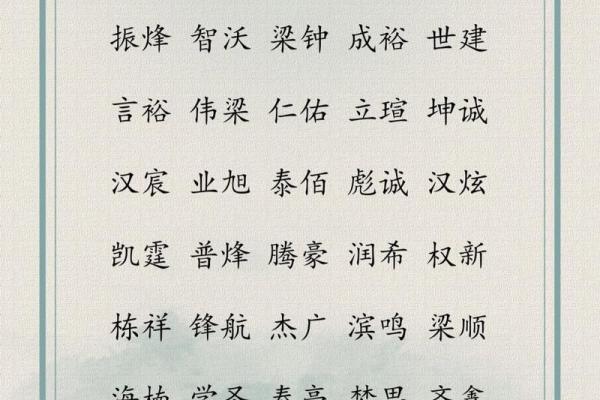 振烽 智沃 梁钟 成裕 世建
言裕 伟梁 仁佑 立瑄 坤诚
汉宸 业旭 泰佰 彪诚 汉炫
凯霆 普烽 腾豪 润希 权新
栋祥 锋航 杰广 滨鸣 梁顺
海楠 学圣 春亮 梦思 齐鑫